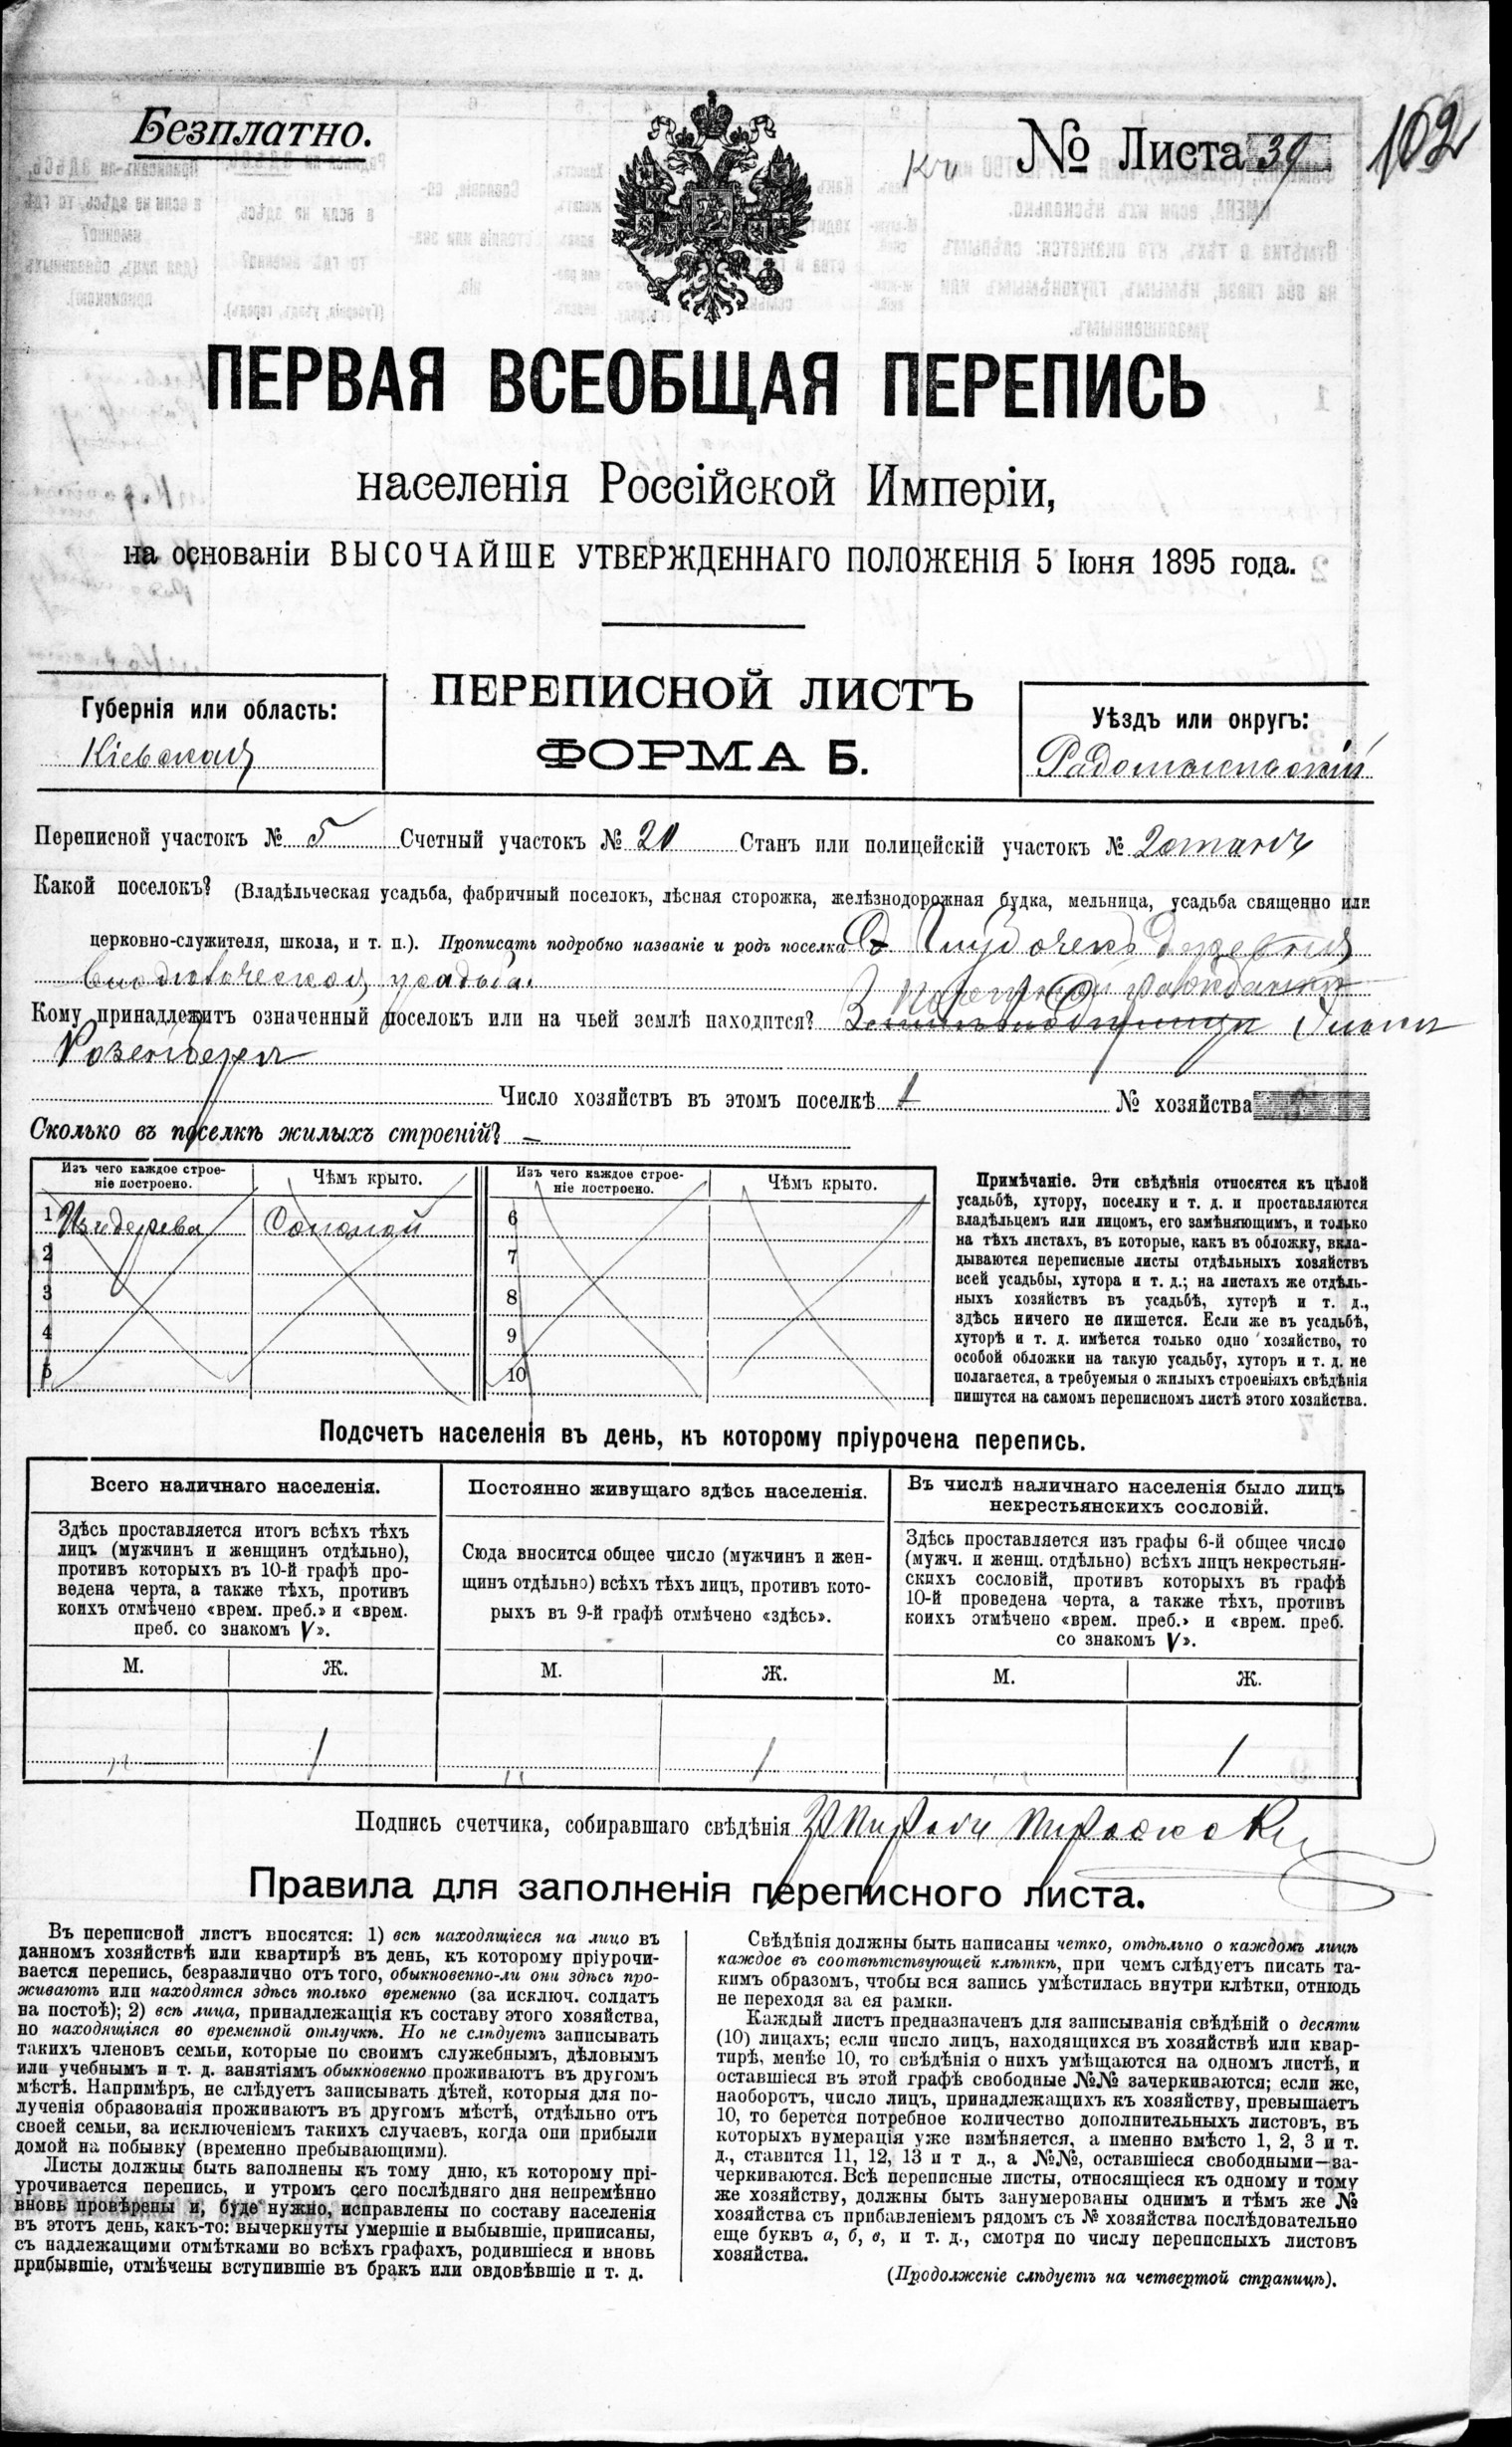 Безплатно.
№ Листа 39
102
ПЕРВАЯ ВСЕОБЩАЯ ПЕРЕПИСЬ
населенія Россійской Имперіи,
на основаніи ВЫСОЧАЙШЕ УТВЕРЖДЕННАГО ПОЛОЖЕНІЯ 5 Іюня 1895 года.
Губернія или область:
Кіевская
ПЕРЕПИСНОЙ ЛИСТЪ
ФОРМА Б.
Уѣздъ или округъ:
Радомысльскій
Переписной участокъ № 5 Счетный участокъ № 20 Станъ или полицейскій участокъ № 2 станъ
Какой поселокъ? (Владѣльческая усадьба, фабричный поселокъ, лѣсная сторожка, желѣзнодорожная будка, мельница, усадьба священно или
церковно-служителя, школа, и т. п.). Прописать подробно названіе и родъ поселка деревня
усадьба.
Кому принадлежитъ означенный поселокъ или на чьей землѣ находится?
Розенберга
Число хозяйствъ въ этомъ поселкѣ 1 № хозяйства
Сколько въ поселкѣ жилыхъ строеній? –
Изъ чего каждое строе-
ніе построено.
Чѣмъ крыто.
Изъ чего каждое строе-
ніе построено.
Чѣмъ крыто.
1 Изъ дерева Соломой
2
3
4
5
6
7
8
9
10
Примѣчаніе. Эти свѣдѣнія относятся къ цѣлой
усадьбѣ, хутору, поселку и т. д. и проставляются
владѣльцемъ или лицомъ, его замѣняющимъ, и только
на тѣхъ листахъ, въ которые, какъ въ обложку, вкла-
дываются переписные листы отдѣльныхъ хозяйствъ
всей усадьбы, хутора и т. д.; на листахъ же отдѣль-
ныхъ хозяйствъ въ усадьбѣ, хуторѣ и т. д.,
здѣсь ничего не пишется. Если же въ усадьбѣ,
хуторѣ и т. д. имѣется только одно хозяйство, то
особой обложки на такую усадьбу, хуторъ и т. д. не
полагается, а требуемыя о жилыхъ строеніяхъ свѣдѣнія
пишутся на самомъ переписномъ листѣ этого хозяйства.
Подсчетъ населенія въ день, къ которому пріурочена перепись.
Всего наличнаго населенія.
Здѣсь проставляется итогъ всѣхъ тѣхъ
лицъ (мужчинъ и женщинъ отдѣльно),
противъ которыхъ въ 10-й графѣ про-
ведена черта, а также тѣхъ, противъ
коихъ отмѣчено «врем. преб.» и «врем.
преб. со знакомъ V».
М. Ж.
" 1
Постоянно живущаго здѣсь населенія.
Сюда вносится общее число (мужчинъ и жен-
щинъ отдѣльно) всѣхъ тѣхъ лицъ, противъ кото-
рыхъ въ 9-й графѣ отмѣчено «здѣсь».
М. Ж.
" 1
Въ числѣ наличнаго населенія было лицъ
некрестьянскихъ сословій.
Здѣсь проставляется изъ графы 6-й общее число
(мужч. и женщ. отдѣльно) всѣхъ лицъ некрестьян-
скихъ сословій, противъ которыхъ въ графѣ
10-й проведена черта, а также тѣхъ, противъ
коихъ отмѣчено «врем. преб.» и «врем. преб.
со знакомъ V».
М. Ж.
" 1
Подпись счетчика, собиравшаго свѣдѣнія
Правила для заполненія переписного листа.
Въ переписной листъ вносятся: 1) всѣ находящіеся на лицо въ
данномъ хозяйствѣ или квартирѣ въ день, къ которому пріурочи-
вается перепись, безразлично отъ того, обыкновенно-ли они здѣсь про-
живаютъ или находятся здѣсь только временно (за исключ. солдатъ
на постоѣ); 2) всѣ лица, принадлежащія къ составу этого хозяйства,
но находящіяся во временной отлучкѣ. Но не слѣдуетъ записывать
такихъ членовъ семьи, которые по своимъ служебнымъ, дѣловымъ
или учебнымъ и т. д. занятіямъ обыкновенно проживаютъ въ другомъ
мѣстѣ. Напримѣръ, не слѣдуетъ записывать дѣтей, которыя для по-
лученія образованія проживаютъ въ другомъ мѣстѣ, отдѣльно отъ
своей семьи, за исключеніемъ такихъ случаевъ, когда они прибыли
домой на побывку (временно пребывающими).
Листы должны быть заполнены къ тому дню, къ которому прі-
урочивается перепись, и утромъ сего послѣдняго дня непремѣнно
вновь провѣрены и, буде нужно, исправлены по составу населенія
въ этотъ день, какъ-то: вычеркнуты умершіе и выбывшіе, приписаны,
съ надлежащими отмѣтками во всѣхъ графахъ, родившіеся и вновь
прибывшіе, отмѣчены вступившіе въ бракъ или овдовѣвшіе и т. д.
Свѣдѣнія должны быть написаны четко, отдѣльно о каждомъ лицѣ
каждое въ соотвѣтствующей клѣткѣ, при чемъ слѣдуетъ писать та-
кимъ образомъ, чтобы вся запись умѣстилась внутри клѣтки, отнюдь
не переходя за ея рамки.
Каждый листъ предназначенъ для записыванія свѣдѣній о десяти
(10) лицахъ; если число лицъ, находящихся въ хозяйствѣ или квар-
тирѣ, менѣе 10, то свѣдѣнія о нихъ умѣщаются на одномъ листѣ, и
оставшіеся въ этой графѣ свободные №№ зачеркиваются; если же,
наоборотъ, число лицъ, принадлежащихъ къ хозяйству, превышаетъ
10, то берется потребное количество дополнительныхъ листовъ, въ
которыхъ нумерація уже измѣняется, а именно вмѣсто 1, 2, 3 и т.
д., ставится 11, 12, 13 и т д., а №№, оставшіеся свободными—за-
черкиваются. Всѣ переписные листы, относящіеся къ одному и тому
же хозяйству, должны быть занумерованы однимъ и тѣмъ же №
хозяйства съ прибавленіемъ рядомъ съ № хозяйства послѣдовательно
еще буквъ а, б, в, и т. д., смотря по числу переписныхъ листовъ
хозяйства.
(Продолженіе слѣдуетъ на четвертой страницѣ).